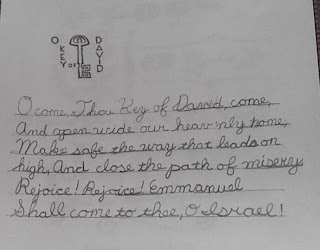 O KEY OF DAVID
O come, Thou Key of David, come,
And open wide our heav'nly home,
Make safe the way that leads on
high, And close the path of misery
Rejoice! Rejoice! Emmanuel
Shall come to thee, O Israel!